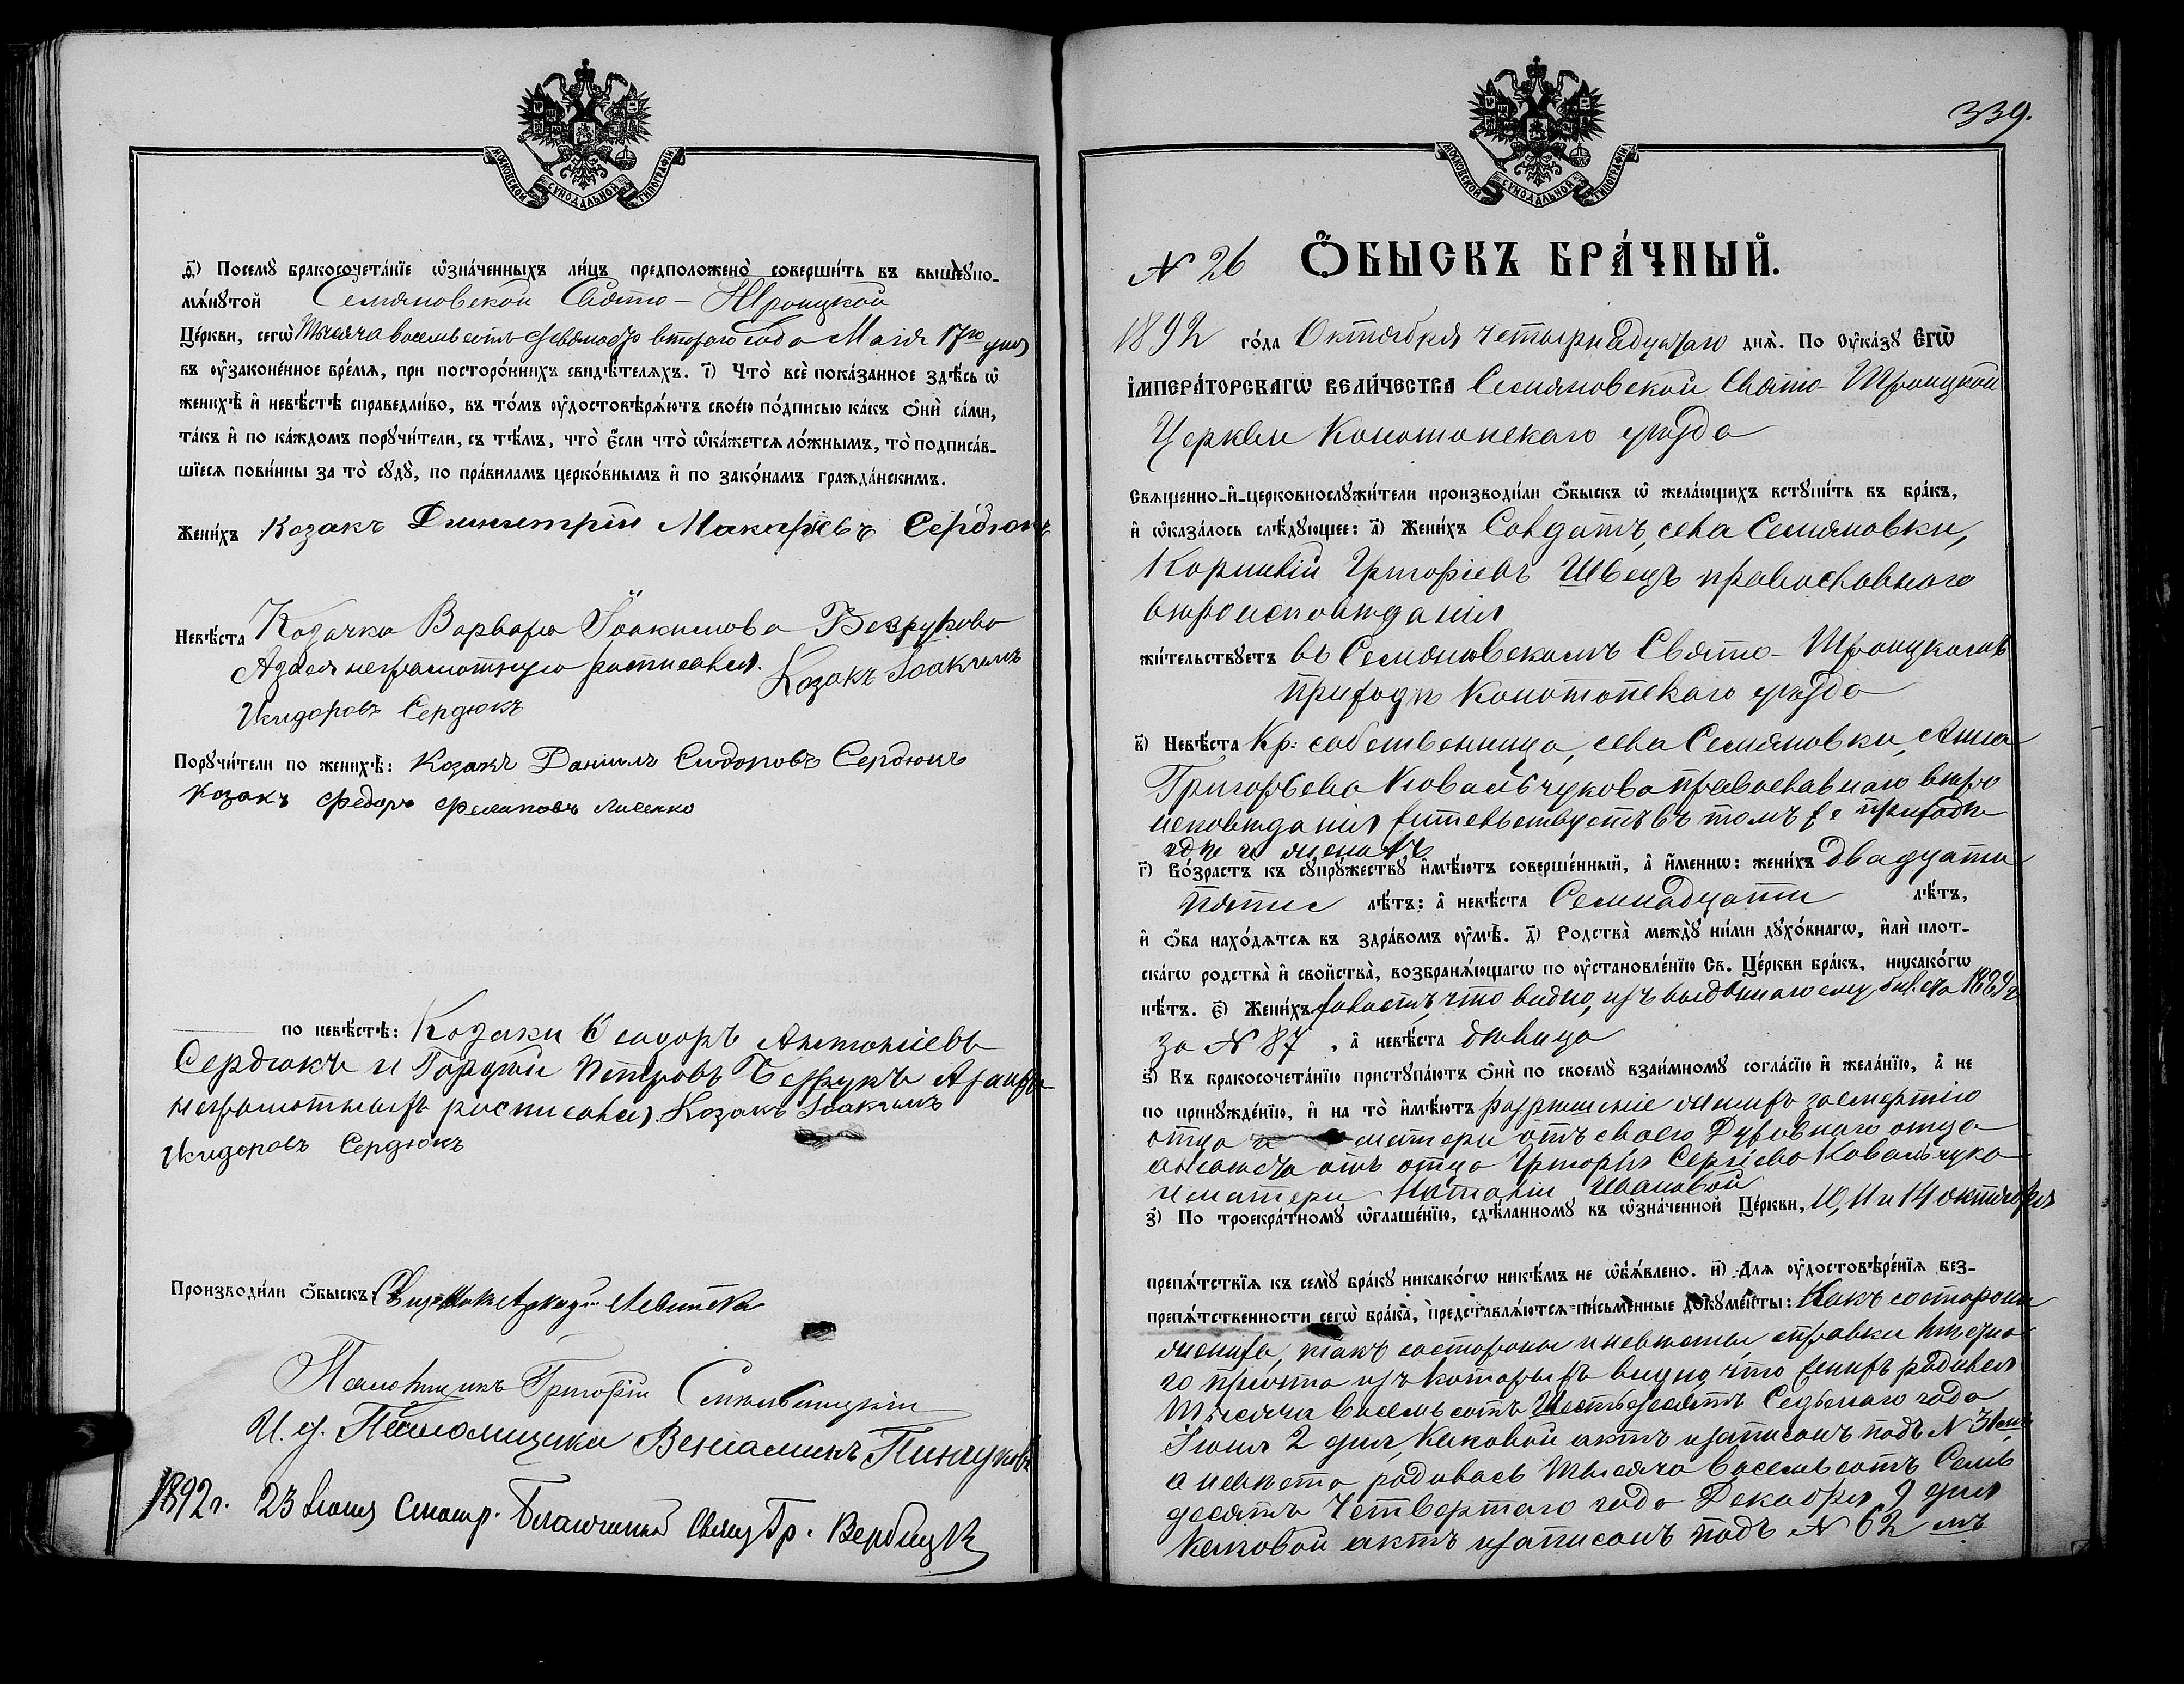 МОСКОВСКОЙ СУНОДАЛЬНОЙ ТИПОГРАФІИ
ѳ҃) Посемꙋ̀ бракосочета́нїе ѡ҆зна́ченныхъ ли́цъ предположено̀ соверши́ть въ вышеꙋпо-
мѧ́нꙋтой Семяновской Свято-Троицкой
Це́ркви, сегѡ̀ Тысяча восемьсотъ девяносто второго года Мая 17го дня
въ ᲂу҆законе́нное вре́мѧ, при посторо́ннихъ свидѣ́телѧхъ. і҃) Что̀ всѐ пока́занное здѣ́сь ѡ҆
женихѣ̀ и҆ невѣ́стѣ справедли́во, въ то́мъ ᲂу҆достовѣрѧ́ютъ свое́ю по́дписью ка́къ ѻ҆нѝ са́ми,
та́къ и҆ по ка́ждомъ порꙋчи́тели, съ тѣ́мъ, что̀ є҆́сли что̀ ѡ҆ка́жетсѧ ло́жнымъ, то̀ подписа́в-
шїесѧ пови́нны за то̀ сꙋдꙋ̀, по пра́виламъ церко́внымъ и҆ по зако́намъ гражда́нскимъ.
Жени́хъ Козакъ Димитрій Макаріевъ Сердюкъ
Невѣ́ста Козачка Варвара Іоакимова Безрукова
А за нея неграмотную росписался. Козакъ Іоакимъ
Исидоровъ Сердюкъ
Порꙋчи́тели по женихѣ̀: Козакъ Даніилъ Сидоровъ Сердюкъ
Козакъ Федоръ Лисенко
по невѣ́стѣ: Козаки Антоніевъ
Сердюкъ и Гордѣй Петровъ Безрукъ А за нихъ
неграмотныхъ росписался Козакъ Іоакимъ
Исидоровъ Сердюкъ
Производи́ли ѻ҆́быскъ: Левитскій
Псаломщикъ Григорій
И. д. Псаломщика Веніаминъ
1892 г. 23 Іюня Смотр. Благочинный Свящ. Гр. Вербицкій
339.
МОСКОВСКОЙ СУНОДАЛЬНОЙ ТИПОГРАФІИ
N 26 Ѻ҆́БЫСКЪ БРА́ЧНЫЙ.
1892 го́да Октября четырнадцатаго днѧ̀. По ᲂу҆ка́зꙋ Є҆гѡ̀
І҆мпера́торскагѡ вели́чества Семяновской Свято-Троицкой
Церкви Конотопскаго уѣзда
Свѧщенно-и҆-церковнослꙋжи́тели производи́ли ѻ҆́быскъ ѡ҆ жела́ющихъ встꙋпи́ть въ бра́къ,
и҆ ѡ҆каза́лось слѣ́дꙋющее: а҃) Жени́хъ Солдатъ, села Семяновки,
Корнилій Григоріевъ Швецъ православнаго
вѣроисповѣданія
жи́тельствꙋетъ въ Семяновскомъ Свято-Троицкомъ
приходѣ Конотопскаго уѣзда
в҃) Невѣ́ста Кр: собственница, села Семяновки, Анна
Григорьева Ковальчукова православнаго вѣро
исповѣданія жительствуетъ въ томъ же приходѣ
гдѣ и женихъ
г҃) Во́зрастъ къ сꙋпрꙋ́жествꙋ и҆мѣ́ютъ соверше́нный, а҆ и҆́меннѡ: жени́хъ двадцати
пяти лѣ́тъ: а҆ невѣ́ста Семнадцати лѣ́тъ,
и҆ ѻ҆́ба нахо́дѧтсѧ въ здра́вомъ ᲂу҆мѣ̀. д҃) Родства̀ междꙋ̀ ни́ми дꙋхо́внагѡ, и҆лѝ плот-
ска́гѡ родства̀ и҆ свойства̀, возбранѧ́ющагѡ по ᲂу҆становле́нїю Св. Це́ркви бра́къ, никако́гѡ
нѣ́тъ. є҃) Жени́хъ холостъ, что видно, изъ выданнаго ему билета
за N 87, а҆ невѣ́ста дѣвица
ѕ҃) Къ бракосочета́нїю пристꙋпа́ютъ ѻ҆нѝ по своемꙋ̀ взаи́мномꙋ согла́сїю и҆ жела́нїю, а҆ не
по принꙋжде́нїю, и҆ на то̀ и҆мѣ́ютъ разрѣшеніе женихъ за смертію
отца и матери отъ своего Духовнаго отца
а невѣста отъ отца Григорія Сергіева Ковальчука
и матери Наталіи Ивановой
з҃) По троекра́тномꙋ ѡ҆глаше́нїю, сдѣ́ланномꙋ въ ѡ҆зна́ченной Це́ркви, 10, 11 и 14 октября
препѧ́тствїѧ къ семꙋ̀ бра́кꙋ никако́гѡ никѣ́мъ не ѡ҆б̾ѧ́влено. и҃) Длѧ ᲂу҆достовѣре́нїѧ без-
препѧ́тственности сегѡ̀ бра́ка, представлѧ́ютсѧ пи́сьменные докꙋме́нты: Какъ со стороны
жениха, такъ со стороны и невѣсты, справки
изъ которыхъ видно, что женихъ родился
Тысяча восемьсотъ Шестьдесятъ Седьмаго года
Іюня 2 дня, каковой актъ записанъ подъ N 31мъ
а невѣста родилась Тысяча восемьсотъ Семь
десятъ Четвертаго года Декабря 9 дня
Каковой актъ записанъ подъ N 62 мъ